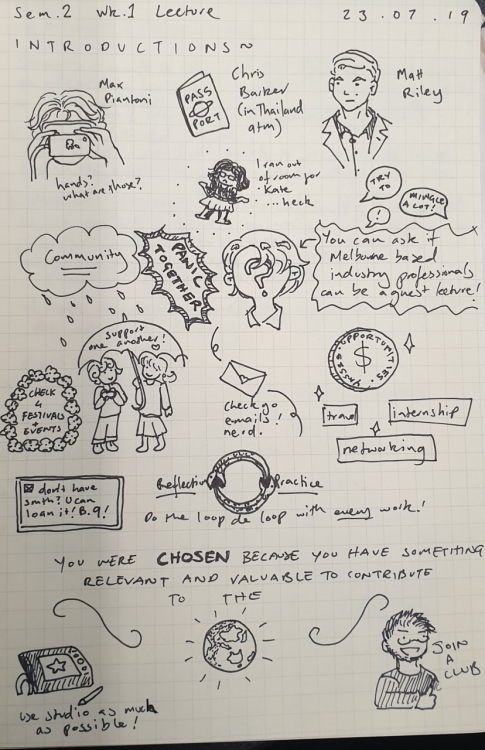 Sem.2 Wk.1 Lecture 23.07.19
INTRODUCTIONS~
Max
Piantoni
PASS
PORT
Chris
Barker
(in Thailand
atm)
Matt
Riley
hands?
what are those?
I ran out
of room for
Kate
...heck
TRY
TO
MINGLE
A LOT!
!
Community
PANIC
TOGETHER!
?
You can ask if
Melbourne based
industry professionals
can be a guest lecture!
support
one another!
OPPORTUNITIES
$
CHECK
4
FESTIVALS
+
EVENTS
Check yo
emails!
nerd.
travel
internship
networking
don't have
smth? U can
loan it! B.9!
Reflection Practice
Do the loop de loop with every work!
YOU WERE CHOSEN BECAUSE YOU HAVE SOMETHING
RELEVANT AND VALUABLE TO CONTRIBUTE
TO THE
JOIN
A
CLUB
use studio as much
as possible!